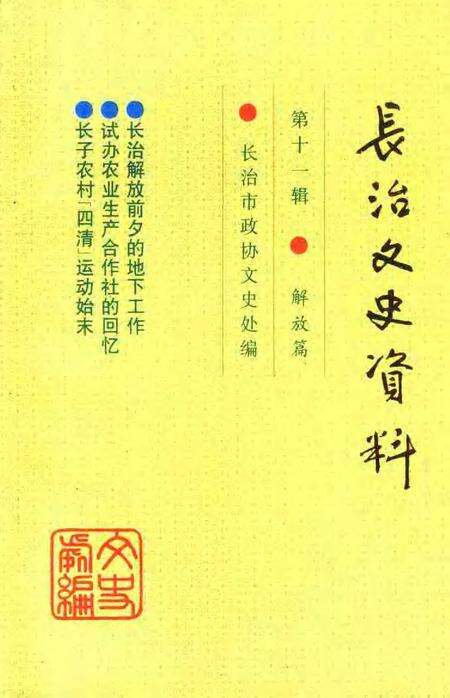 長治文史資料
第十一辑 ● 解放篇
● 长治市政协文史处编
● 长治解放前夕的地下工作
● 试办农业生产合作社的回忆
● 长子农村「四清」运动始末
文史
处编